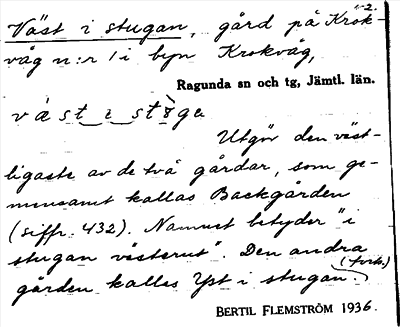 1-2.
Väst i stugan, gård på Krok-
våg n:r 1 i byn Krokvåg,
Ragunda sn och tg, Jämtl. län.
väst i ståga
Utgör den väst-
ligaste av de två gårdar, som ge-
mensamt kallas Backgården
(siffr. 432). Namnet betyder "i
stugan västerut". Den andra
gården kallas Yst i stugan.
(forts.)
BERTIL FLEMSTRÖM 1936.